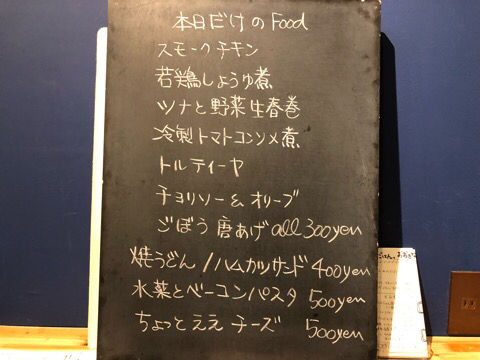 本日だけのFood
スモークチキン
若鶏しょうゆ煮
ツナと野菜生春巻
冷製トマトコンソメ煮
トルティーヤ
チョリソー&オリーブ
ごぼう唐あげ all 300yen
焼うどん/ハムカツサンド 400yen
水菜とベーコンパスタ 500yen
ちょっとええチーズ 500yen